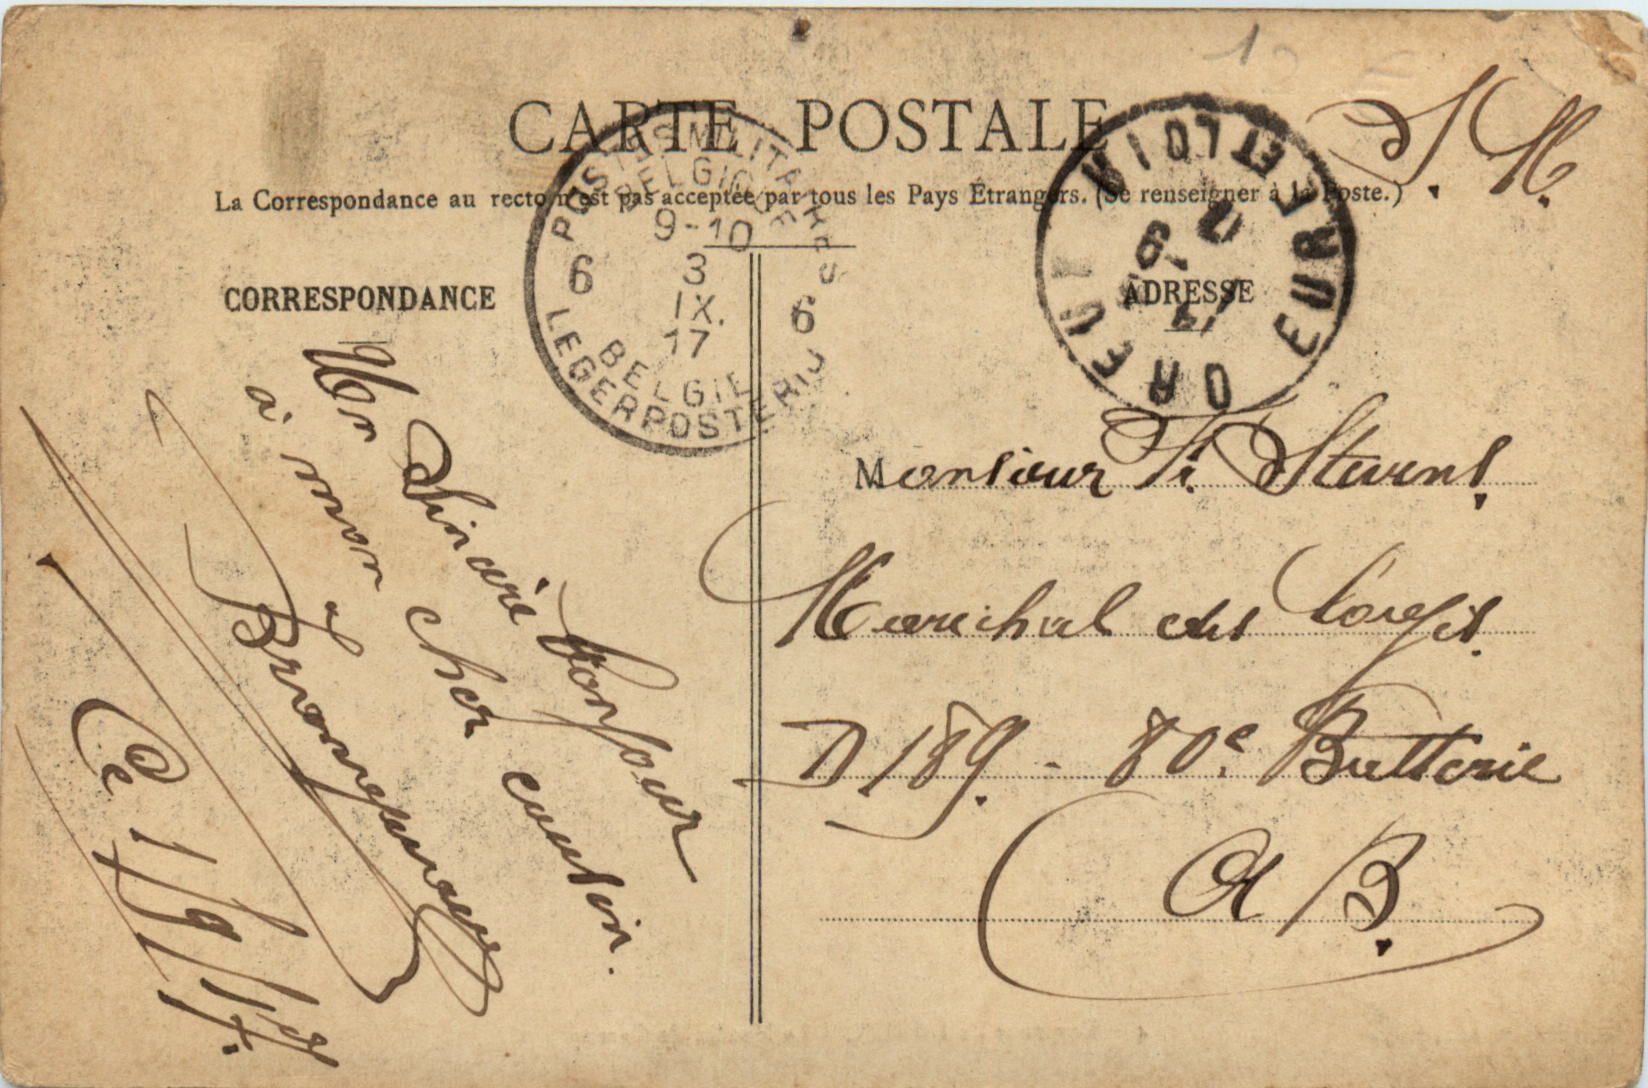 CARTE POSTALE
S. M.
La Correspondance au recto n'est pas acceptée par tous les Pays Étrangers. (Se renseigner à la Poste.)
POSTES MILITAIRES
BELGIQUE
9-10
3
IX.
17
6 6
BELGIE
LEGERPOSTERIJ
EURE ET LOIR
CORRESPONDANCE
ADRESSE
Un Sincère bonjour
à mon cher cousin.
Ce 1/9/17.
Monsieur Sturns.
Marechal des Logis.
D. 189. - 80e Batterie
A B.